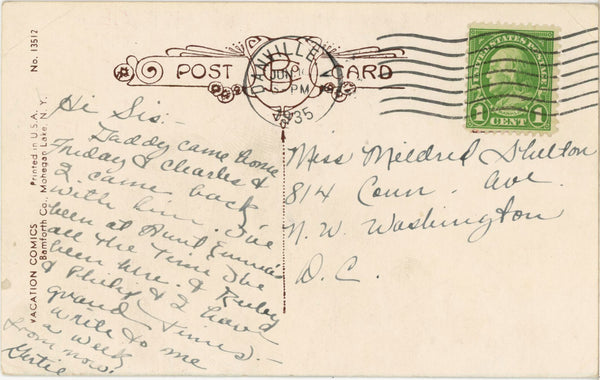 No. 13512
Printed in U.S.A.
VACATION COMICS
Bamforth Co., Mohegan Lake, N. Y.
POST CARD
DANVILLE
JUN
PM
1935
UNITED STATES POSTAGE
1 1
CENT
Hi Sis:-
Daddy came home
Friday & Charles &
I came back
with him. I've
been at Aunt Emma's
all the time I've
been here. & Ruby
& Philip & I have
grand times.-
Write to me
a week
from now.
Gertie
Miss Mildred Shelton
814 Conn. Ave
N. W. Washington
D. C.